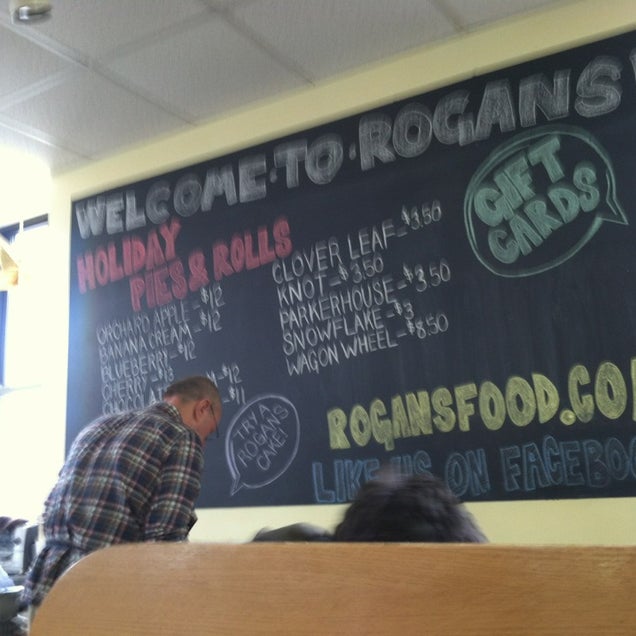 WELCOME·TO·ROGANS
HOLIDAY
PIES & ROLLS
ORCHARD APPLE - $12
BANANA CREAM - $12
BLUEBERRY - $12
CHERRY - $13
$12
$11
CLOVER LEAF - $3.50
KNOT - $3.50
PARKERHOUSE - $3.50
SNOWFLAKE - $3
WAGON WHEEL - $8.50
GIFT
CARDS
TRY A
ROGANS
CAKE!
ROGANSFOOD.CO
LIKE US ON FACEBOO